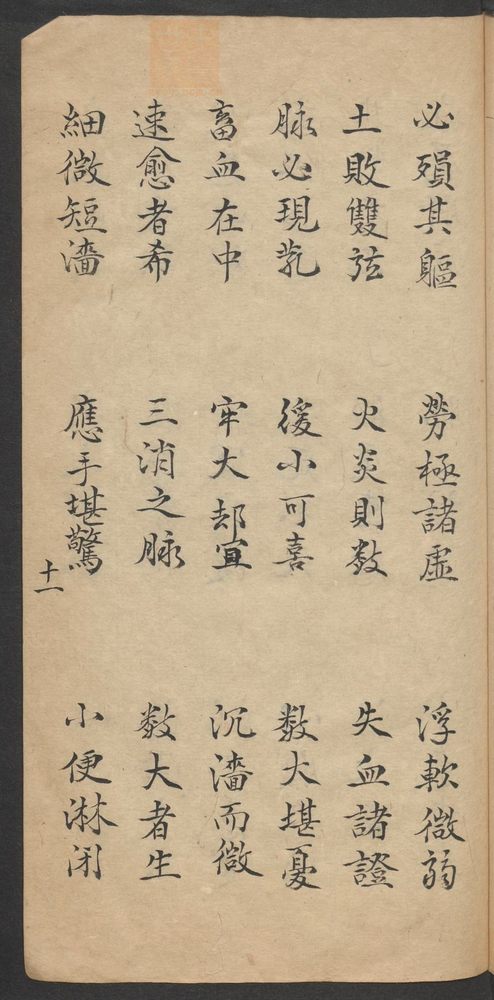 必殞其軀　勞極諸虛　浮軟微弱
土敗雙弦　火炎則数　失血諸證
脉必現芤　緩小可喜　数大堪憂
畜血在中　牢大却宜　沉濇而微
速愈者希　三消之脉　数大者生
細微短濇　應手堪驚　小便淋闭
十一